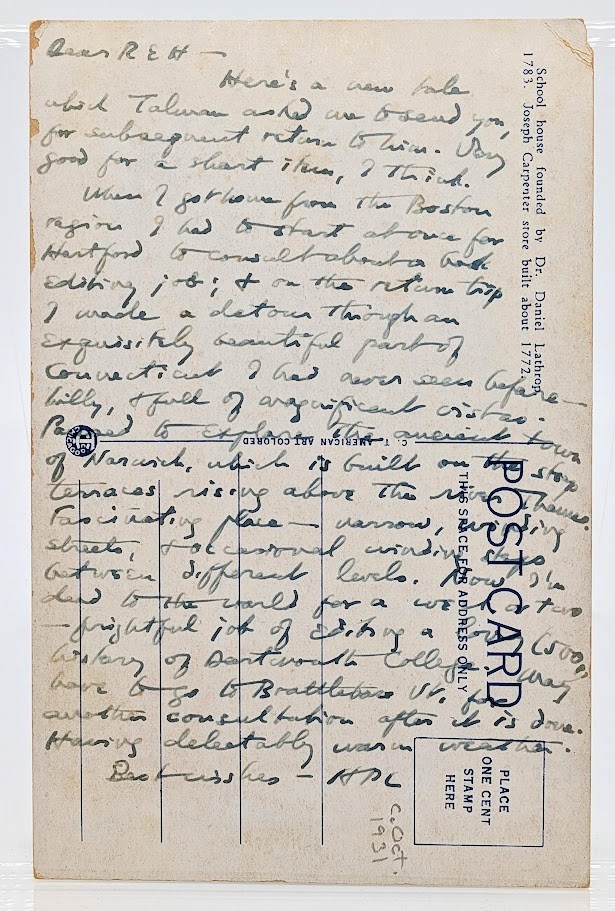 Dear R E H —
Here's a new tale
which Talman asked me to send you,
for subsequent return to him. Very
good for a short item, I think.
When I got home from the Boston
region I had to start at once for
Hartford to consult about a book
editing job; & on the return trip
I made a detour through an
exquisitely beautiful part of
Connecticut I had never seen before —
hilly, & full of magnificent vistas.
Paused to explore the ancient town
of Norwich, which is built on the steep
terraces rising above the river Thames.
Fascinating place — narrow, winding
streets, & occasional winding steps
between different levels. Now I'm
dead to the world for a week or two
— frightful job of editing a
history of Dartmouth College. May
have to go to Brattleboro Vt. for
another consultation after it is done.
Having delectably warm weather.
Best wishes — HPL
c. Oct.
1931
School house founded by Dr. Daniel Lathrop
1783. Joseph Carpenter store built about 1772.
POST CARD
THIS SPACE FOR ADDRESS ONLY
PLACE
ONE CENT
STAMP
HERE
C. T. AMERICAN ART COLORED